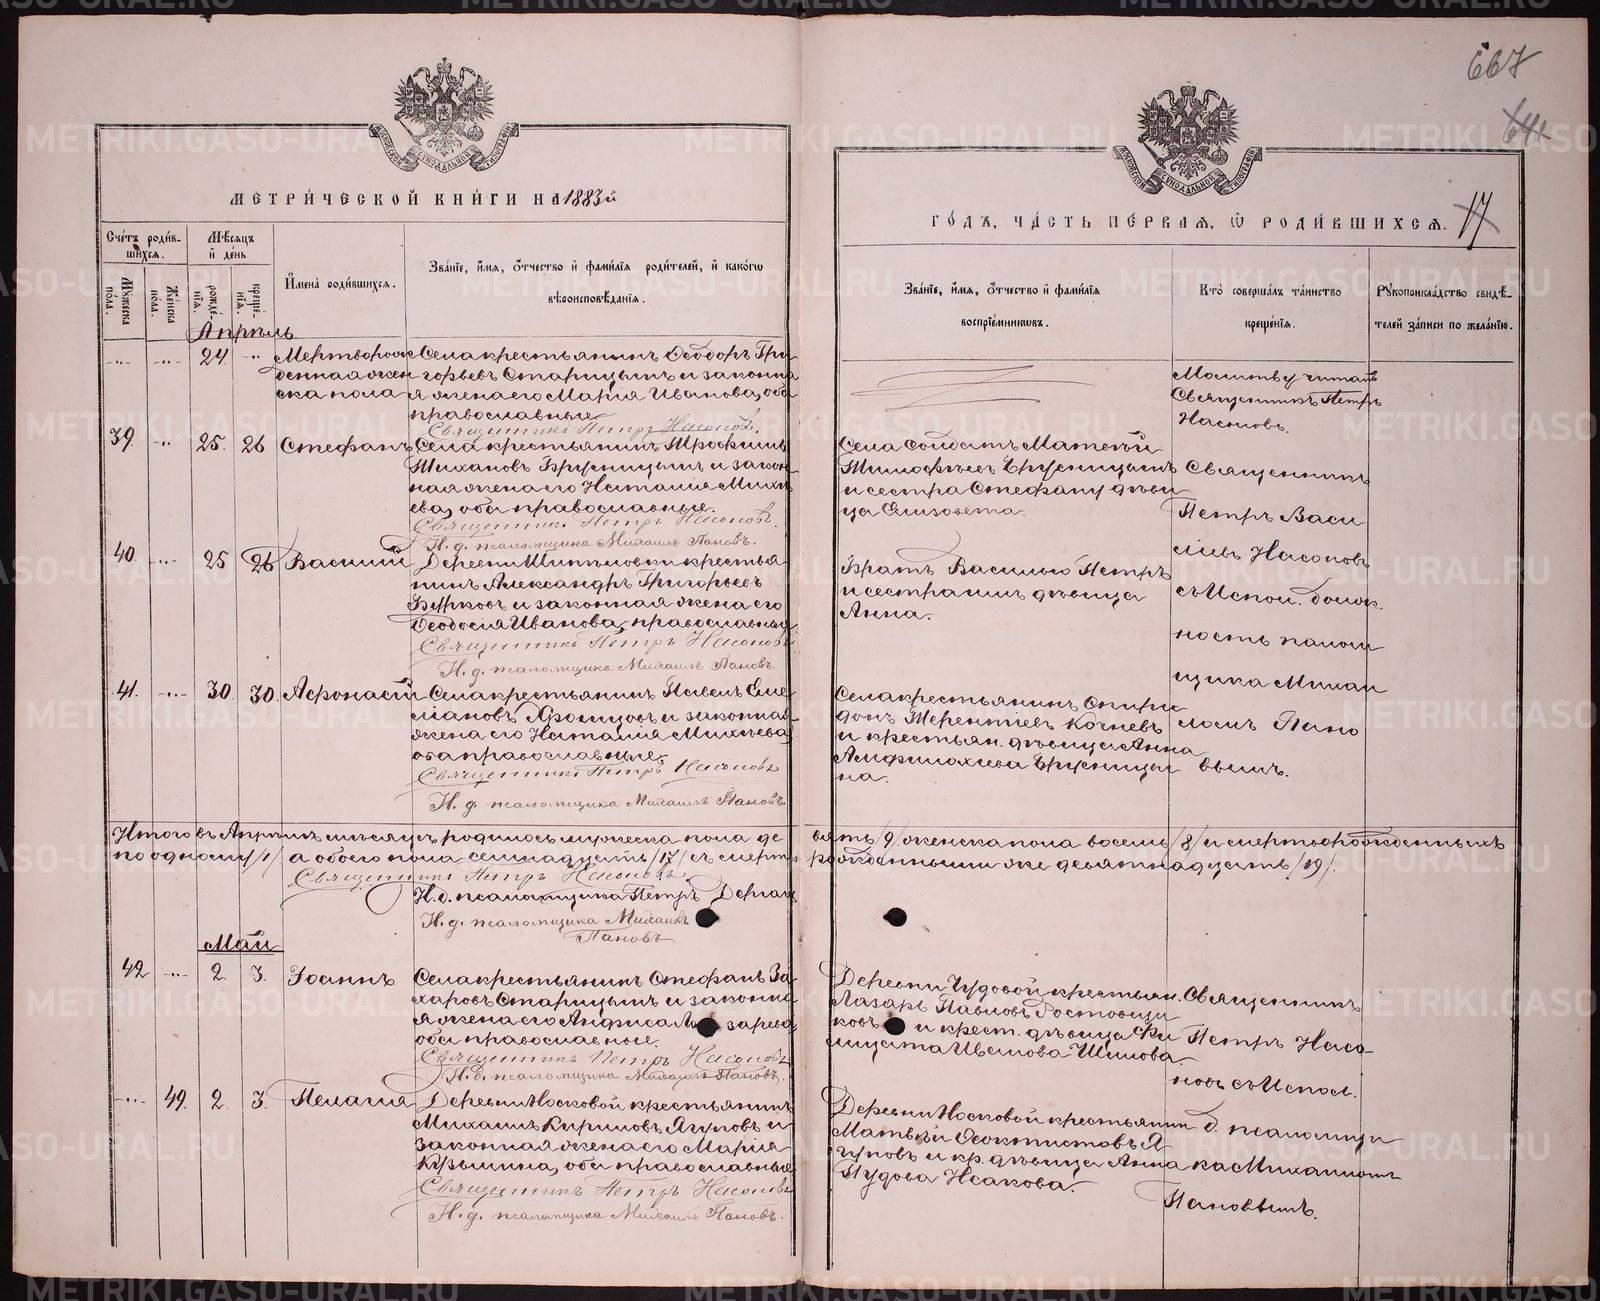 667
641
МЕТРИ́ЧЕСКОЙ КНИ́ГИ НА 1883й
ГО́ДЪ, ЧА́СТЬ ПЕ́РВАЯ, Ѡ РОДИ́ВШИХСЯ.
17
Сче́тъ роди́в-
шихся.
Мѣ́сяцъ
и́ де́нь
Му́жеска по́ла.
Же́нска по́ла.
рожде́-нїя.
креще́-нїя.
И́мена̀ роди́вшихся.
Зва́нїе, и́мя, о́тчество и́ фами́лїя роди́телей, и́ како́гѡ
вѣроисповѣ́данїя.
Зва́нїе, и́мя, о́тчество и́ фами́лїя
воспрїе́мникѡвъ.
Кто̀ соверша́лъ та́инство
креще́нїя.
Рꙋкоприкла́дство свидѣ́-
телей за́писи по жела́нїю.
Апрѣль
24
Мертворож
денная жен
ска пола
Села крестьянинъ Ѳеодоръ Гри
горьевъ Старицынъ и законна
я жена его Марія Иванова, оба
православные
Священникъ Петръ Насоновъ.
Молитву читалъ
Священникъ Петръ
Насоновъ.
39. 25. 26 Стефанъ
Села крестьянинъ Трофимъ
Тихановъ Брусницынъ и закон
ная жена его Наталія Михе
ева, оба православные.
Священникъ Петръ Насоновъ.
Н. д. псаломщика Михаилъ Пановъ.
Села солдатъ Матвѣй
Тимофѣевъ Брусницынъ
и сестра Стефану дѣви
ца Елизовета.
Священникъ
Петръ Васи
ліевъ Насоновъ
съ Испол. долж.
ность псалом
щика Михаи
ломъ Пано
вымъ.
40. 25 26 Василій
Деревни Шипиловки крестья
нинъ Александръ Григорьевъ
и законная жена его
Ѳеодосія Иванова, православныя
Священникъ Петръ Насоновъ
Н. д. псаломщика Михаилъ Пановъ.
Братъ Василію Петръ
и сестра имъ дѣвица
Анна.
41. 30. 30. Афонасій
Села крестьянинъ Павелъ Еме
ліановъ и законная
жена его Наталія Михѣева
оба православные.
Священникъ Петръ Насоновъ
Н. д. псаломщика Михаилъ Пановъ
Села крестьянинъ Спири
донъ Терентіевъ Кочневъ
и крестьян. дѣвица Анна
Амфилохіева Брусницы
на.
Итого въ Апрѣлѣ мѣсяцѣ родилось мужеска пола де
вять /9/ женска пола восемь /8/ и мертворожденныхъ
по одному /1/ а обоего пола семнадцать /17/ съ мертво
рожденными же девятнадцать /19/.
Священникъ Петръ Насоновъ
Н. д. псаломщика Петръ
Н. д. псаломщика Михаилъ
Пановъ
Май
42 2. 3. Іоаннъ
Села крестьянинъ Стефанъ За
харовъ Старицынъ и законна
я жена его Анфиса Лазарева
оба православные.
Священникъ Петръ Насоновъ
Н. д. псаломщика Михаилъ Пановъ.
Деревни Чудовой крестьян.
Лазарь Павловъ Ростовщи
ковъ и крест. дѣвица Фи
Иванова Шилова
Священникъ
Петръ Насо-
новъ съ Испол.
д. псаломщи
ка Михаиломъ
Пановымъ.
49. 2. 3. Пелагія
Деревни Носковой крестьянинъ
Михаилъ Кириловъ Ягуповъ и
законная жена его Марія
Кузьмина, оба православные
Священникъ Петръ Насоновъ
Н. д. псаломщика Михаилъ Пановъ.
Деревни Носковой крестьянин
Матвѣй Ѳеоктистовъ Я
гуповъ и кр. дѣвица Анна
Пудова Исакова.